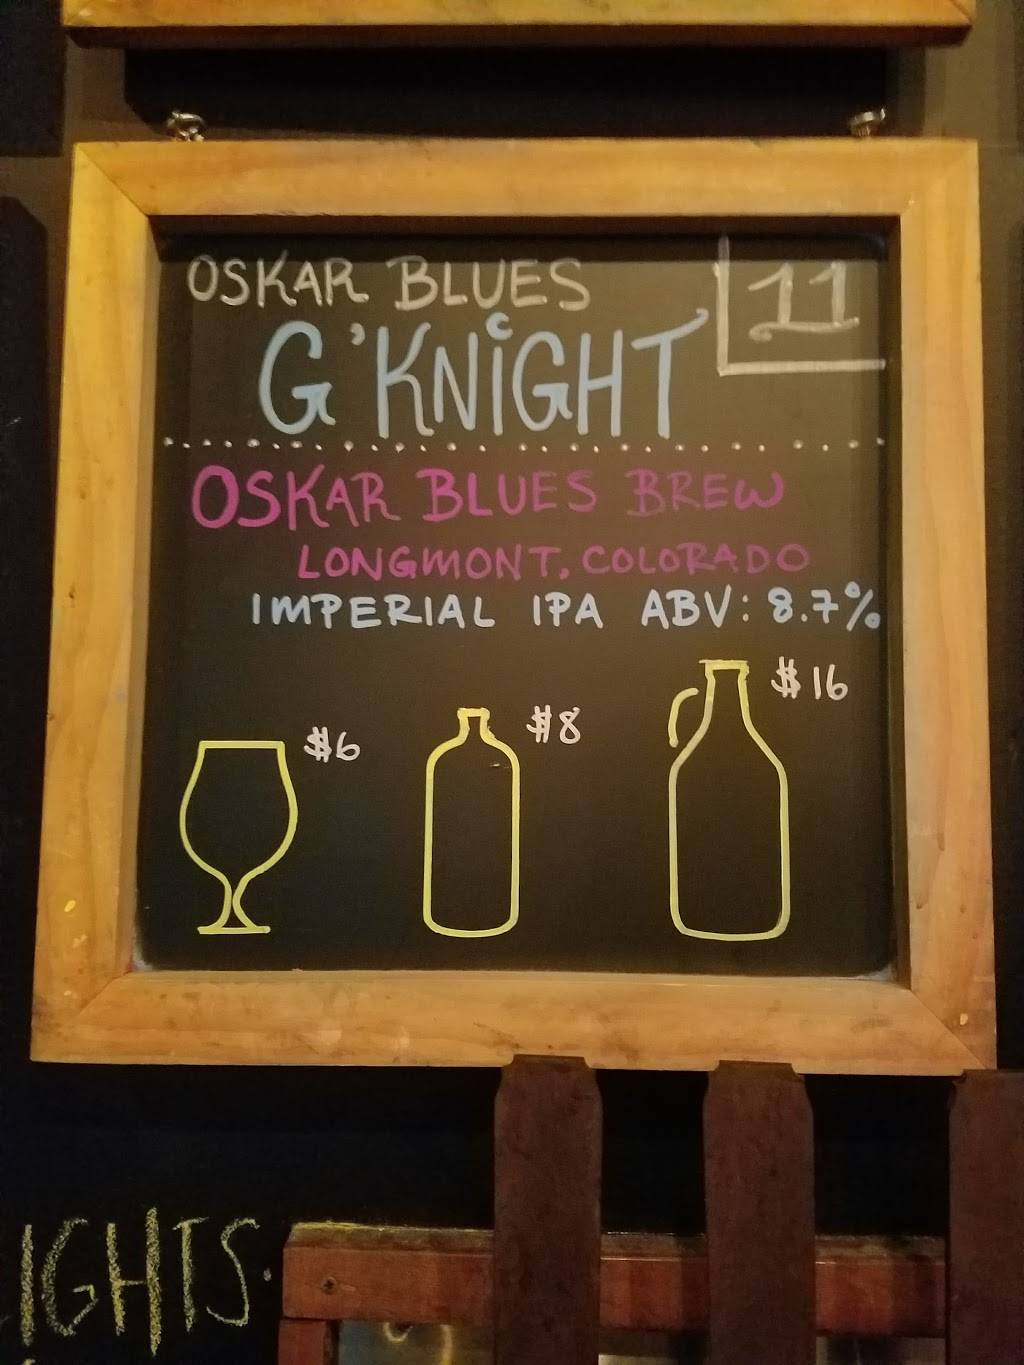 OSKAR BLUES
11
G'KNiGHT
OSKAR BLUES BREW
LONGMONT, COLORADO
IMPERIAL IPA ABV: 8.7%
$6
$8
$16
IGHTS